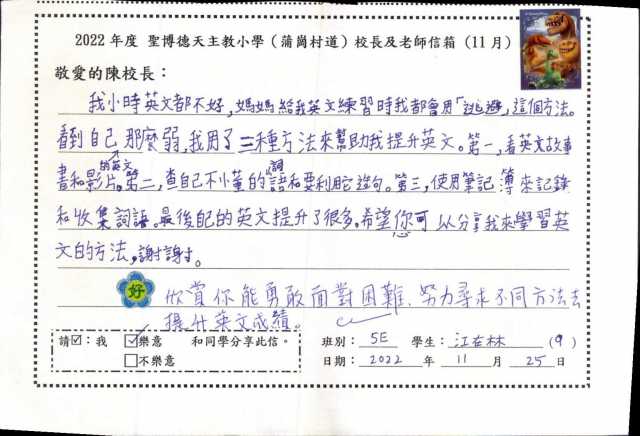 2022 年度 聖博德天主教小學(蒲崗村道)校長及老師信箱(11月)
敬愛的陳校長:
我小時英文都不好,媽媽給我英文練習時我都會用「逃避」這個方法。
看到自己那麼弱,我用了三種方法來幫助我提升英文。第一,看英文故事
書和影片。第二,查自己不小董的語和要利用它造句。第三,使用筆記簿來記錄
的英文
詞
和收集詞語。最後自己的英文提升了很多。希望您可以分享我來學習英
文的方法,謝謝。
好
欣賞你能勇敢面對困難、努力尋求不同方法去
提升英文成績。
請☑:我 ☑樂意 和同學分享此信。
□不樂意
班別: 5E 學生: 江 林 (9)
日期: 2022 年 11 月 25 日